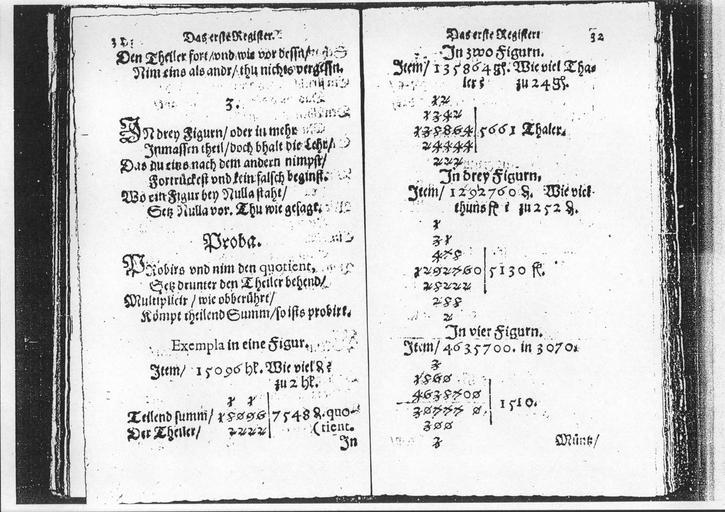 Das erste Register.
Den Theiler fort/vnd wie vor dessn/
Nim eins als andr/thu nichts vergessn.
3.
IN drey Figurn/oder in mehr
Inmassen theil/doch bhalt die Lehr/
Das du eins nach dem andern nimpst/
Fortrückest vnd kein falsch beginst.
Wo ein Figur bey Nulla staht/
Setz Nulla vor. Thu wie gesagt.
Proba.
PRobirs vnd nim den quotient,
Setz drunter den Theiler behend/
Multiplicir/wie obberührt/
Kömpt theilend Summ/so ists probirt.
Exempla in eine Figur.
Item/ 15096 hl. Wie viel ₰?
zu 2 hl.
1 1
Teilend summ/ 15096 | 7548 ₰. quo-
Der Theiler/ 2222 (tient.
In
Das erste Register 32
In zwo Figurn.
Item/ 135864 gl. Wie viel Tha-
ler? zu 24 gl.
12
1342
135864 | 5661 Thaler.
24444
222
In drey Figurn.
Item/ 1292760 ₰. Wie viel
thuns fl? zu 252 ₰.
1
31
478
1292760 | 5130 fl.
2
In vier Figurn.
Item/ 4635700. in 3070.
3
1860
4635700 | 1510.
300
3
Müntz/